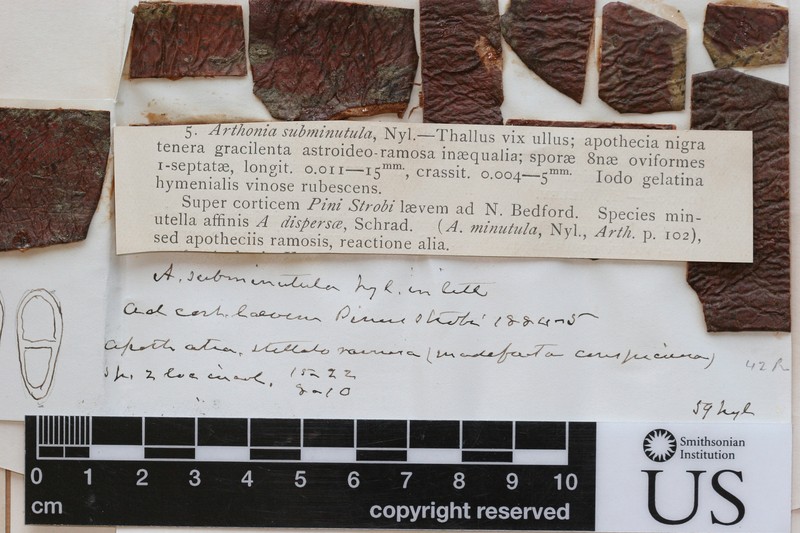 5. Arthonia subminutula, Nyl.—Thallus vix ullus; apothecia nigra
tenera gracilenta astroideo-ramosa inæqualia; sporæ 8næ oviformes
1-septatæ, longit. 0.011—15mm., crassit. 0.004—5mm. Iodo gelatina
hymenialis vinose rubescens.
Super corticem Pini Strobi lævem ad N. Bedford. Species min-
utella affinis A dispersæ, Schrad. (A. minutula, Nyl., Arth. p. 102),
sed apotheciis ramosis, reactione alia.
A. subminutula Nyl. in litt
ad cort. laevem Pinus Strobi 1884-5
apoth atra, stellato ramosa (madefacta conspicua)
sp. 2 locular.
42 R
59 Nyl
0 1 2 3 4 5 6 7 8 9 10
cm
copyright reserved
Smithsonian
Institution
US